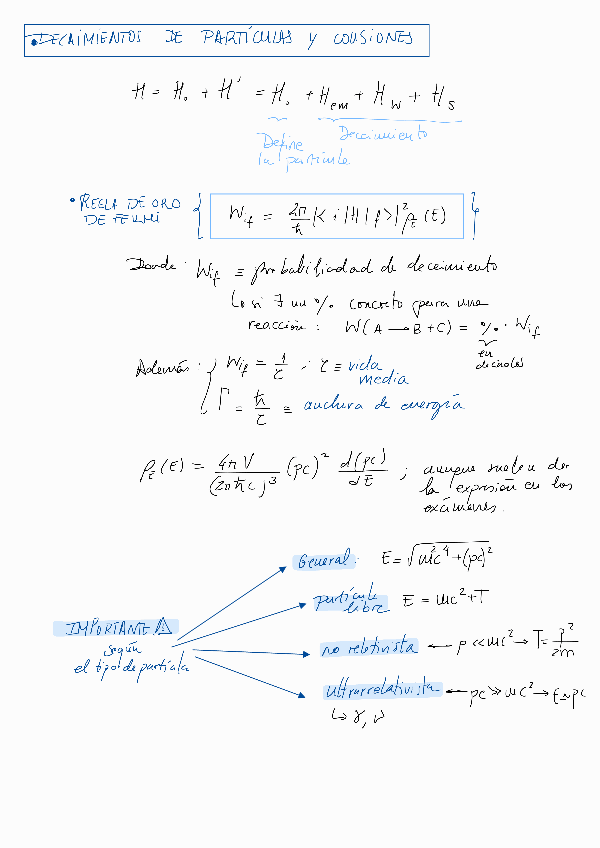 • DECAIMIENTOS DE PARTÍCULAS Y COLISIONES
H = H₀ + H' = H₀ + H_em + H_W + H_S
Define la partícula
Decaimiento
• REGLA DE ORO DE FERMI { W_if = 2π/ħ |< i |H| f >|² ρ_E (E) }
Donde: W_if ≡ probabilidad de decaimiento
↳ si ∃ un % concreto para una
reacción: W(A → B + C) = % · W_if
en decimales
Además: { W_if = 1/τ ; τ ≡ vida media
Γ = ħ/τ ≡ anchura de energía
ρ_E (E) = 4π V/(2πħc)³ (pc)² d(pc)/dE ; aunque suelen dar
la expresión en los
exámenes.
General: E = √(m²c⁴ + (pc)²)
partícula libre E = mc² + T
IMPORTANTE ⚠
según
el tipo de partícula
no relativista ← p ≪ mc² → T = p²/2m
ultrarrelativista ← pc ≫ mc² → E ≃ pc
↳ γ, ν